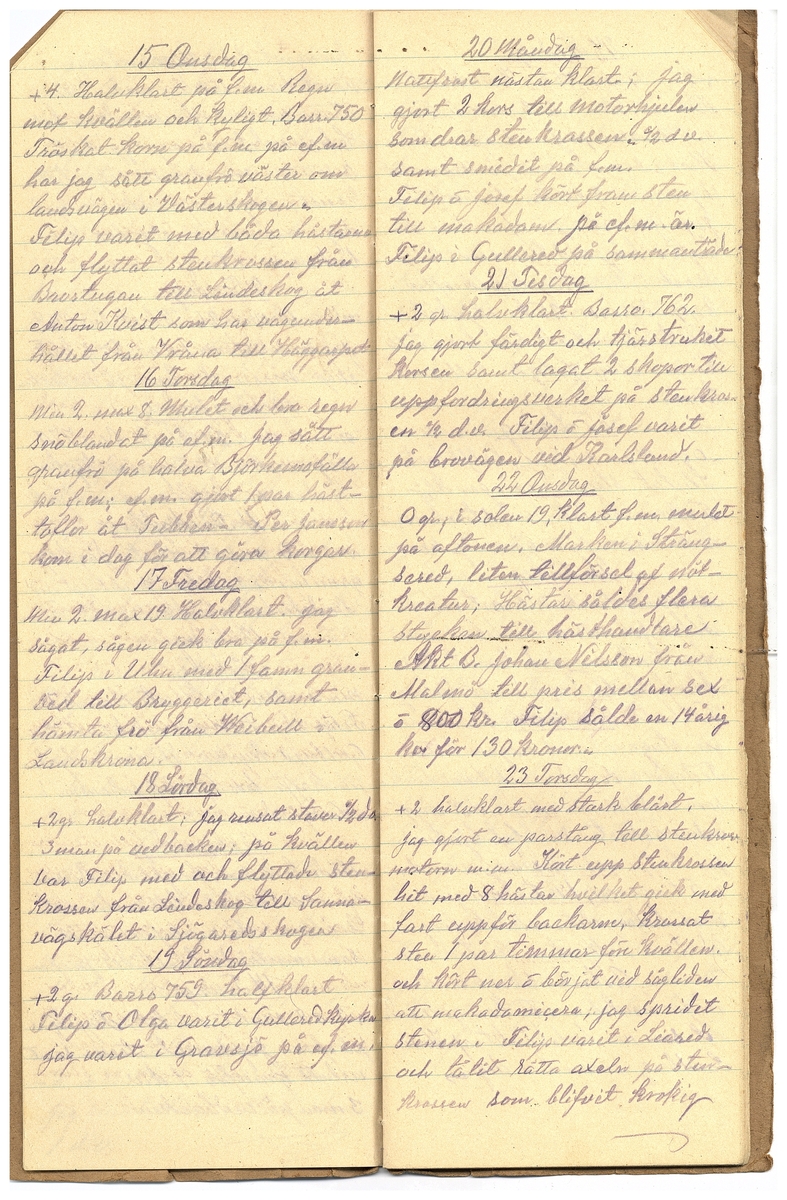 15 Onsdag
+4. Halvklart på f.m. Regn
mot kvällen och kyligt. Barr. 750
Tröskat korn på f.m. på ef.m
har jag sått granfrö väster om
landsvägen i Västerskogen.
Filip varit med båda hästarna
och flyttat stenkrossen från
Brostugan till Lindeskog åt
Anton Kvist som har vägunder-
hållet från Vråna till Häggarpet
16 Torsdag
Min 2. max 8. Mulet och bra regn
snöblandat på ef.m. Jag sått
granfrö på halva
på f.m; ef.m. gjort 1 par häst-
tofflor åt Tubben. Per Jansson
kom i dag för att göra korgar.
17 Fredag
Min 2. max 19. Halvklart. jag
sågat, sågen gick bra på f.m.
Filip i Uhu med 1 famn gran-
ved till Bryggeriet, samt
hämta frö från Weibull i
Landskrona.
18 Lördag
+2 gr halvklart; jag rensat staver ½ da
3 man på vedbacken; på kvällen
var Filip med och flyttade sten-
krossen från Lindeskog till Sanna-
vägskälet i Sjögaredsskogen
19 Söndag
+2 gr Barro 759. halfklart
Filip å Olga varit i Gullered kyrka
jag varit i Gravsjö på ef.m.
20 Måndag
Nattfrost nästan klart; jag
gjort 2 kors till motorhjulen
som drar stenkrossen. ½ d.v.
samt smedit på f.m.
Filip å Josef kört fram sten
till makadam. på ef.m. är
Filip i Gullered på sammanträde
21 Tisdag
+2 gr halvklart. Barro. 762.
jag gjort färdigt och tjärstruket
korsen samt lagat 2 skopor till
uppfordringsverket på stenkros-
en ½ d.v. Filip å Josef varit
på brovägen ved Karlsland.
22 Onsdag
0 gr; i solen 19, klart f.m. mulet
på aftonen. Marken i Sträng-
sered, liten tillförsel af nöt-
kreatur; Hästar såldes flera
stycken till hästhandlare
Akt B. Johan Nilsson från
Malmö till pris mellan sex
å 800 kr. Filip sålde en 14årig
ko för 130 kronor.
23 Torsdag
+2 halvklart med stark blåst.
jag gjort en parstång till stenkros
motorn m.m. Kört upp stenkrossen
hit med 8 hästar hvilket gick med
fart uppför backarna, krossat
sten 1 par timmar före kvällen.
och kört ner å börjat vid sågliden
att makadamisera; jag spridit
stenen. Filip varit i Liared
och tålit rätta axeln på sten-
krossen som blifvit krokig